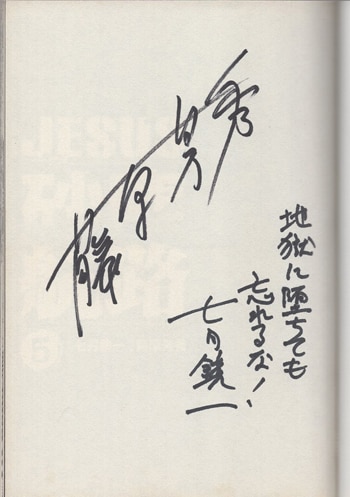 藤原芳秀
地獄に堕ちても
忘れるな!
七月鏡一